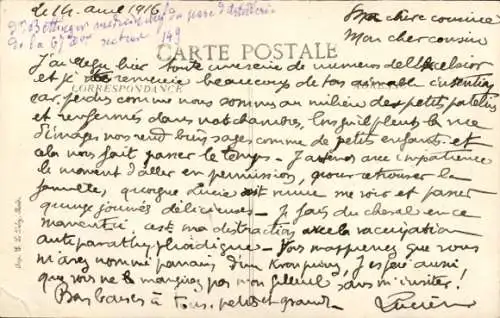 de 14 avril 1916
Ma chère cousine
Mon cher cousin
Dr Bottinger médecin du parc d'artillerie
de la 67 Don secteur 149
CARTE POSTALE
J'ai reçu hier toute une série de numéros de l'Excelsior
et je remercie beaucoup de ton aimable intention
CORRESPONDANCE
car perdus comme nous sommes au milieu des petits patelins
et renfermés dans nos chambres, lorsqu'il pleut la vue
d'images nous rend bien sages comme de petits enfants et
cela nous fait passer le temps - J'attends avec impatience
le moment d'aller en permission, pour retrouver la
famille, quoique Lucie est venue me voir et passer
quinze journées délicieuses - Je fais du cheval en ce
moment-ci c'est ma distraction avec la vaccination
antiparatyphoïdique - Vous m'apprenez que vous
m'avez nommé parrain d'un Kronprinz, j'espère aussi
que vous ne le mangerez pas mon filleul sans m'inviter!
Bons baisers à tous petits et grands
Lucien